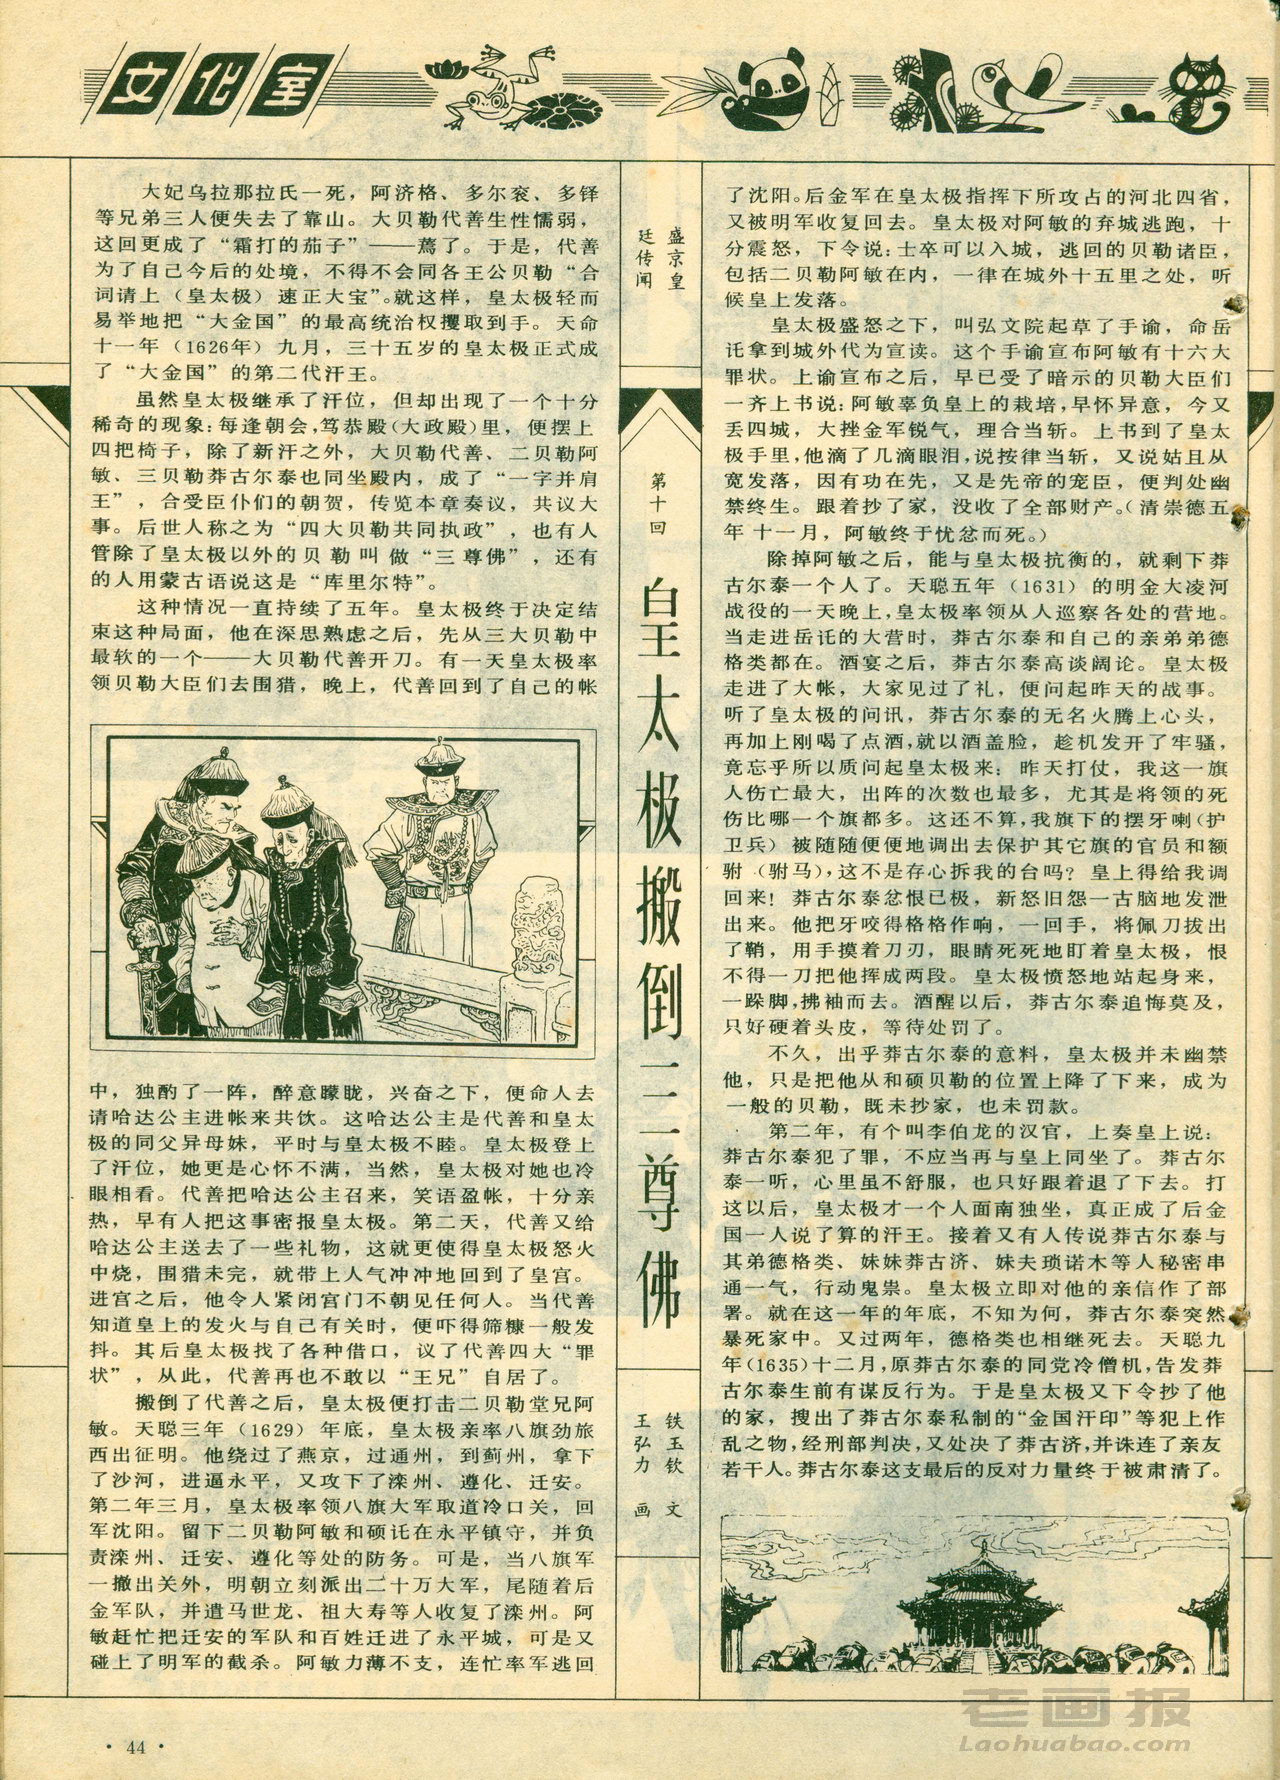 文化室
盛京皇
廷传闻
第十回
皇太极搬倒三尊佛
铁玉钦 文
王弘力 画
大妃乌拉那拉氏一死，阿济格、多尔衮、多铎
等兄弟三人便失去了靠山。大贝勒代善生性懦弱，
这回更成了“霜打的茄子”——蔫了。于是，代善
为了自己今后的处境，不得不会同各王公贝勒“合
词请上（皇太极）速正大宝”。就这样，皇太极轻而
易举地把“大金国”的最高统治权攫取到手。天命
十一年（1626年）九月，三十五岁的皇太极正式成
了“大金国”的第二代汗王。
虽然皇太极继承了汗位，但却出现了一个十分
稀奇的现象：每逢朝会，笃恭殿（大政殿）里，便摆上
四把椅子，除了新汗之外，大贝勒代善、二贝勒阿
敏、三贝勒莽古尔泰也同坐殿内，成了“一字并肩
王”，合受臣仆们的朝贺，传览本章奏议，共议大
事。后世人称之为“四大贝勒共同执政”，也有人
管除了皇太极以外的贝勒叫做“三尊佛”，还有
的人用蒙古语说这是“库里尔特”。
这种情况一直持续了五年。皇太极终于决定结
束这种局面，他在深思熟虑之后，先从三大贝勒中
最软的一个——大贝勒代善开刀。有一天皇太极率
领贝勒大臣们去围猎，晚上，代善回到了自己的帐
中，独酌了一阵，醉意朦胧，兴奋之下，便命人去
请哈达公主进帐来共饮。这哈达公主是代善和皇太
极的同父异母妹，平时与皇太极不睦。皇太极登上
了汗位，她更是心怀不满，当然，皇太极对她也冷
眼相看。代善把哈达公主召来，笑语盈帐，十分亲
热，早有人把这事密报皇太极。第二天，代善又给
哈达公主送去了一些礼物，这就更使得皇太极怒火
中烧，围猎未完，就带上人气冲冲地回到了皇宫。
进宫之后，他令人紧闭宫门不朝见任何人。当代善
知道皇上的发火与自己有关时，便吓得筛糠一般发
抖。其后皇太极找了各种借口，议了代善四大“罪
状”，从此，代善再也不敢以“王兄”自居了。
搬倒了代善之后，皇太极便打击二贝勒堂兄阿
敏。天聪三年（1629）年底，皇太极亲率八旗劲旅
西出征明。他绕过了燕京，过通州，到蓟州，拿下
了沙河，进逼永平，又攻下了滦州、遵化、迁安。
第二年三月，皇太极率领八旗大军取道冷口关，回
军沈阳。留下二贝勒阿敏和硕讬在永平镇守，并负
责滦州、迁安、遵化等处的防务。可是，当八旗军
一撤出关外，明朝立刻派出二十万大军，尾随着后
金军队，并遣马世龙、祖大寿等人收复了滦州。阿
敏赶忙把迁安的军队和百姓迁进了永平城，可是又
碰上了明军的截杀。阿敏力薄不支，连忙率军逃回
了沈阳。后金军在皇太极指挥下所攻占的河北四省，
又被明军收复回去。皇太极对阿敏的弃城逃跑，十
分震怒，下令说：士卒可以入城，逃回的贝勒诸臣，
包括二贝勒阿敏在内，一律在城外十五里之处，听
候皇上发落。
皇太极盛怒之下，叫弘文院起草了手谕，命岳
讬拿到城外代为宣读。这个手谕宣布阿敏有十六大
罪状。上谕宣布之后，早已受了暗示的贝勒大臣们
一齐上书说：阿敏辜负皇上的栽培，早怀异意，今又
丢四城，大挫金军锐气，理合当斩。上书到了皇太
极手里，他滴了几滴眼泪，说按律当斩，又说姑且从
宽发落，因有功在先，又是先帝的宠臣，便判处幽
禁终生。跟着抄了家，没收了全部财产。（清崇德五
年十一月，阿敏终于忧忿而死。）
除掉阿敏之后，能与皇太极抗衡的，就剩下莽
古尔泰一个人了。天聪五年（1631）的明金大凌河
战役的一天晚上，皇太极率领从人巡察各处的营地。
当走进岳讬的大营时，莽古尔泰和自己的亲弟弟德
格类都在。酒宴之后，莽古尔泰高谈阔论。皇太极
走进了大帐，大家见过了礼，便问起昨天的战事。
听了皇太极的问讯，莽古尔泰的无名火腾上心头，
再加上刚喝了点酒，就以酒盖脸，趁机发开了牢骚，
竟忘乎所以质问起皇太极来：昨天打仗，我这一旗
人伤亡最大，出阵的次数也最多，尤其是将领的死
伤比哪一个旗都多。这还不算，我旗下的摆牙喇（护
卫兵）被随随便便地调出去保护其它旗的官员和额
驸（驸马），这不是存心拆我的台吗？皇上得给我调
回来！莽古尔泰忿恨已极，新怒旧怨一古脑地发泄
出来。他把牙咬得格格作响，一回手，将佩刀拔出
了鞘，用手摸着刀刃，眼睛死死地盯着皇太极，恨
不得一刀把他挥成两段。皇太极愤怒地站起身来，
一跺脚，拂袖而去。酒醒以后，莽古尔泰追悔莫及，
只好硬着头皮，等待处罚了。
不久，出乎莽古尔泰的意料，皇太极并未幽禁
他，只是把他从和硕贝勒的位置上降了下来，成为
一般的贝勒，既未抄家，也未罚款。
第二年，有个叫李伯龙的汉官，上奏皇上说：
莽古尔泰犯了罪，不应当再与皇上同坐了。莽古尔
泰一听，心里虽不舒服，也只好跟着退了下去。打
这以后，皇太极才一个人面南独坐，真正成了后金
国一人说了算的汗王。接着又有人传说莽古尔泰与
其弟德格类、妹妹莽古济、妹夫琐诺木等人秘密串
通一气，行动鬼祟。皇太极立即对他的亲信作了部
署。就在这一年的年底，不知为何，莽古尔泰突然
暴死家中。又过两年，德格类也相继死去。天聪九
年（1635）十二月，原莽古尔泰的同党冷僧机，告发莽
古尔泰生前有谋反行为。于是皇太极又下令抄了他
的家，搜出了莽古尔泰私制的“金国汗印”等犯上作
乱之物，经刑部判决，又处决了莽古济，并诛连了亲友
若干人。莽古尔泰这支最后的反对力量终于被肃清了。
· 44 ·
老画报
Laohuabao.com